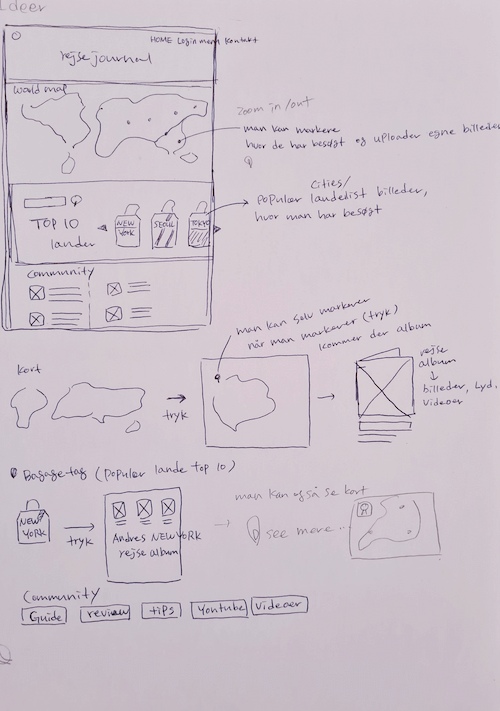 Ideer
HOME Login menu kontakt
rejse journal
World map
Zoom in/out
man kan markere
hvor de har besøgt og uploader egne billeder
Cities/
populær landelist billeder,
hvor man har besøgt
TOP 10
lander
NEW YORK
SEOUL
TOKYO
Community
man kan selv markerer
når man markerer (tryk)
kommer der album
kort
tryk
rejse
album
billeder, Lyd,
videoer
Bagage-tag (populær lande top 10)
NEW YORK
tryk
Andres NEW YORK
rejse album
man kan også se kort
see more...
Community
Guide
review
tips
Youtube
Videoer